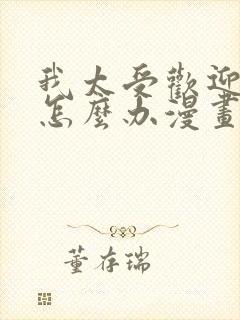 我太受歡迎
怎麼办漫畫
董存瑞